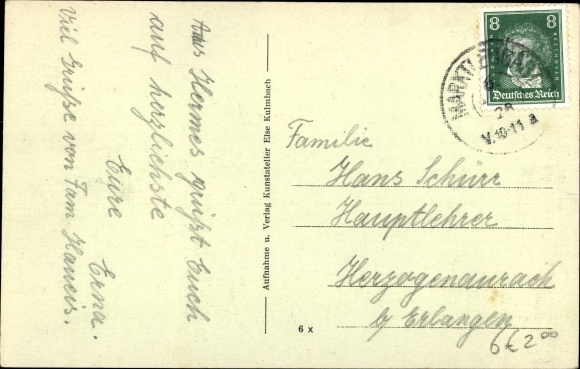 Aus Hermes grüßt Euch
auf herzlichste
Eure
Erna.
Viel Grüße von Fam. Haueis.
Aufnahme u. Verlag Kunstatelier Else Kulmbach
6 x
8 8
BEETHOVEN
Deutsches Reich
28
V. 10-11 a
Familie
Hans Schürr
Hauptlehrer
Herzogenaurach
b/ Erlangen
6€ 2 00